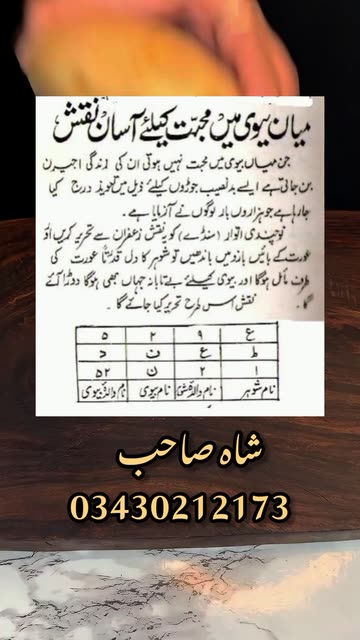 میاں بیوی میں محبّت کیلئے آسان نقش
جن میاں بیوی میں محبت نہیں ہوتی ان کی زندگی اجیرن
بن جاتی ہے ایسے بدنصیب جوڑوں کیلئے ذیل میں تعویذ درج کیا
جا رہا ہے جو ہزاروں بار لوگوں نے آزمایا ہے۔
نوچندی اتوار (سنڈے) کو یہ نقش زعفران سے تحریر کریں اور
عورت کے بائیں بازو میں باندھیں تو شوہر کا دل قدرتاً عورت کی
طرف مائل ہوگا اور بیوی کیلئے بے تابانہ جہاں بھی ہوگا دوڑا آئے
گا۔ نقش اس طرح تحریر کیا جائے گا۔
ع ۹ ۲ ۵
ط ع ن د
ا ۲ ن ۵۲
نام شوہر نام والدہ نام بیوی نام والدہ بیوی
شاہ صاحب
03430212173